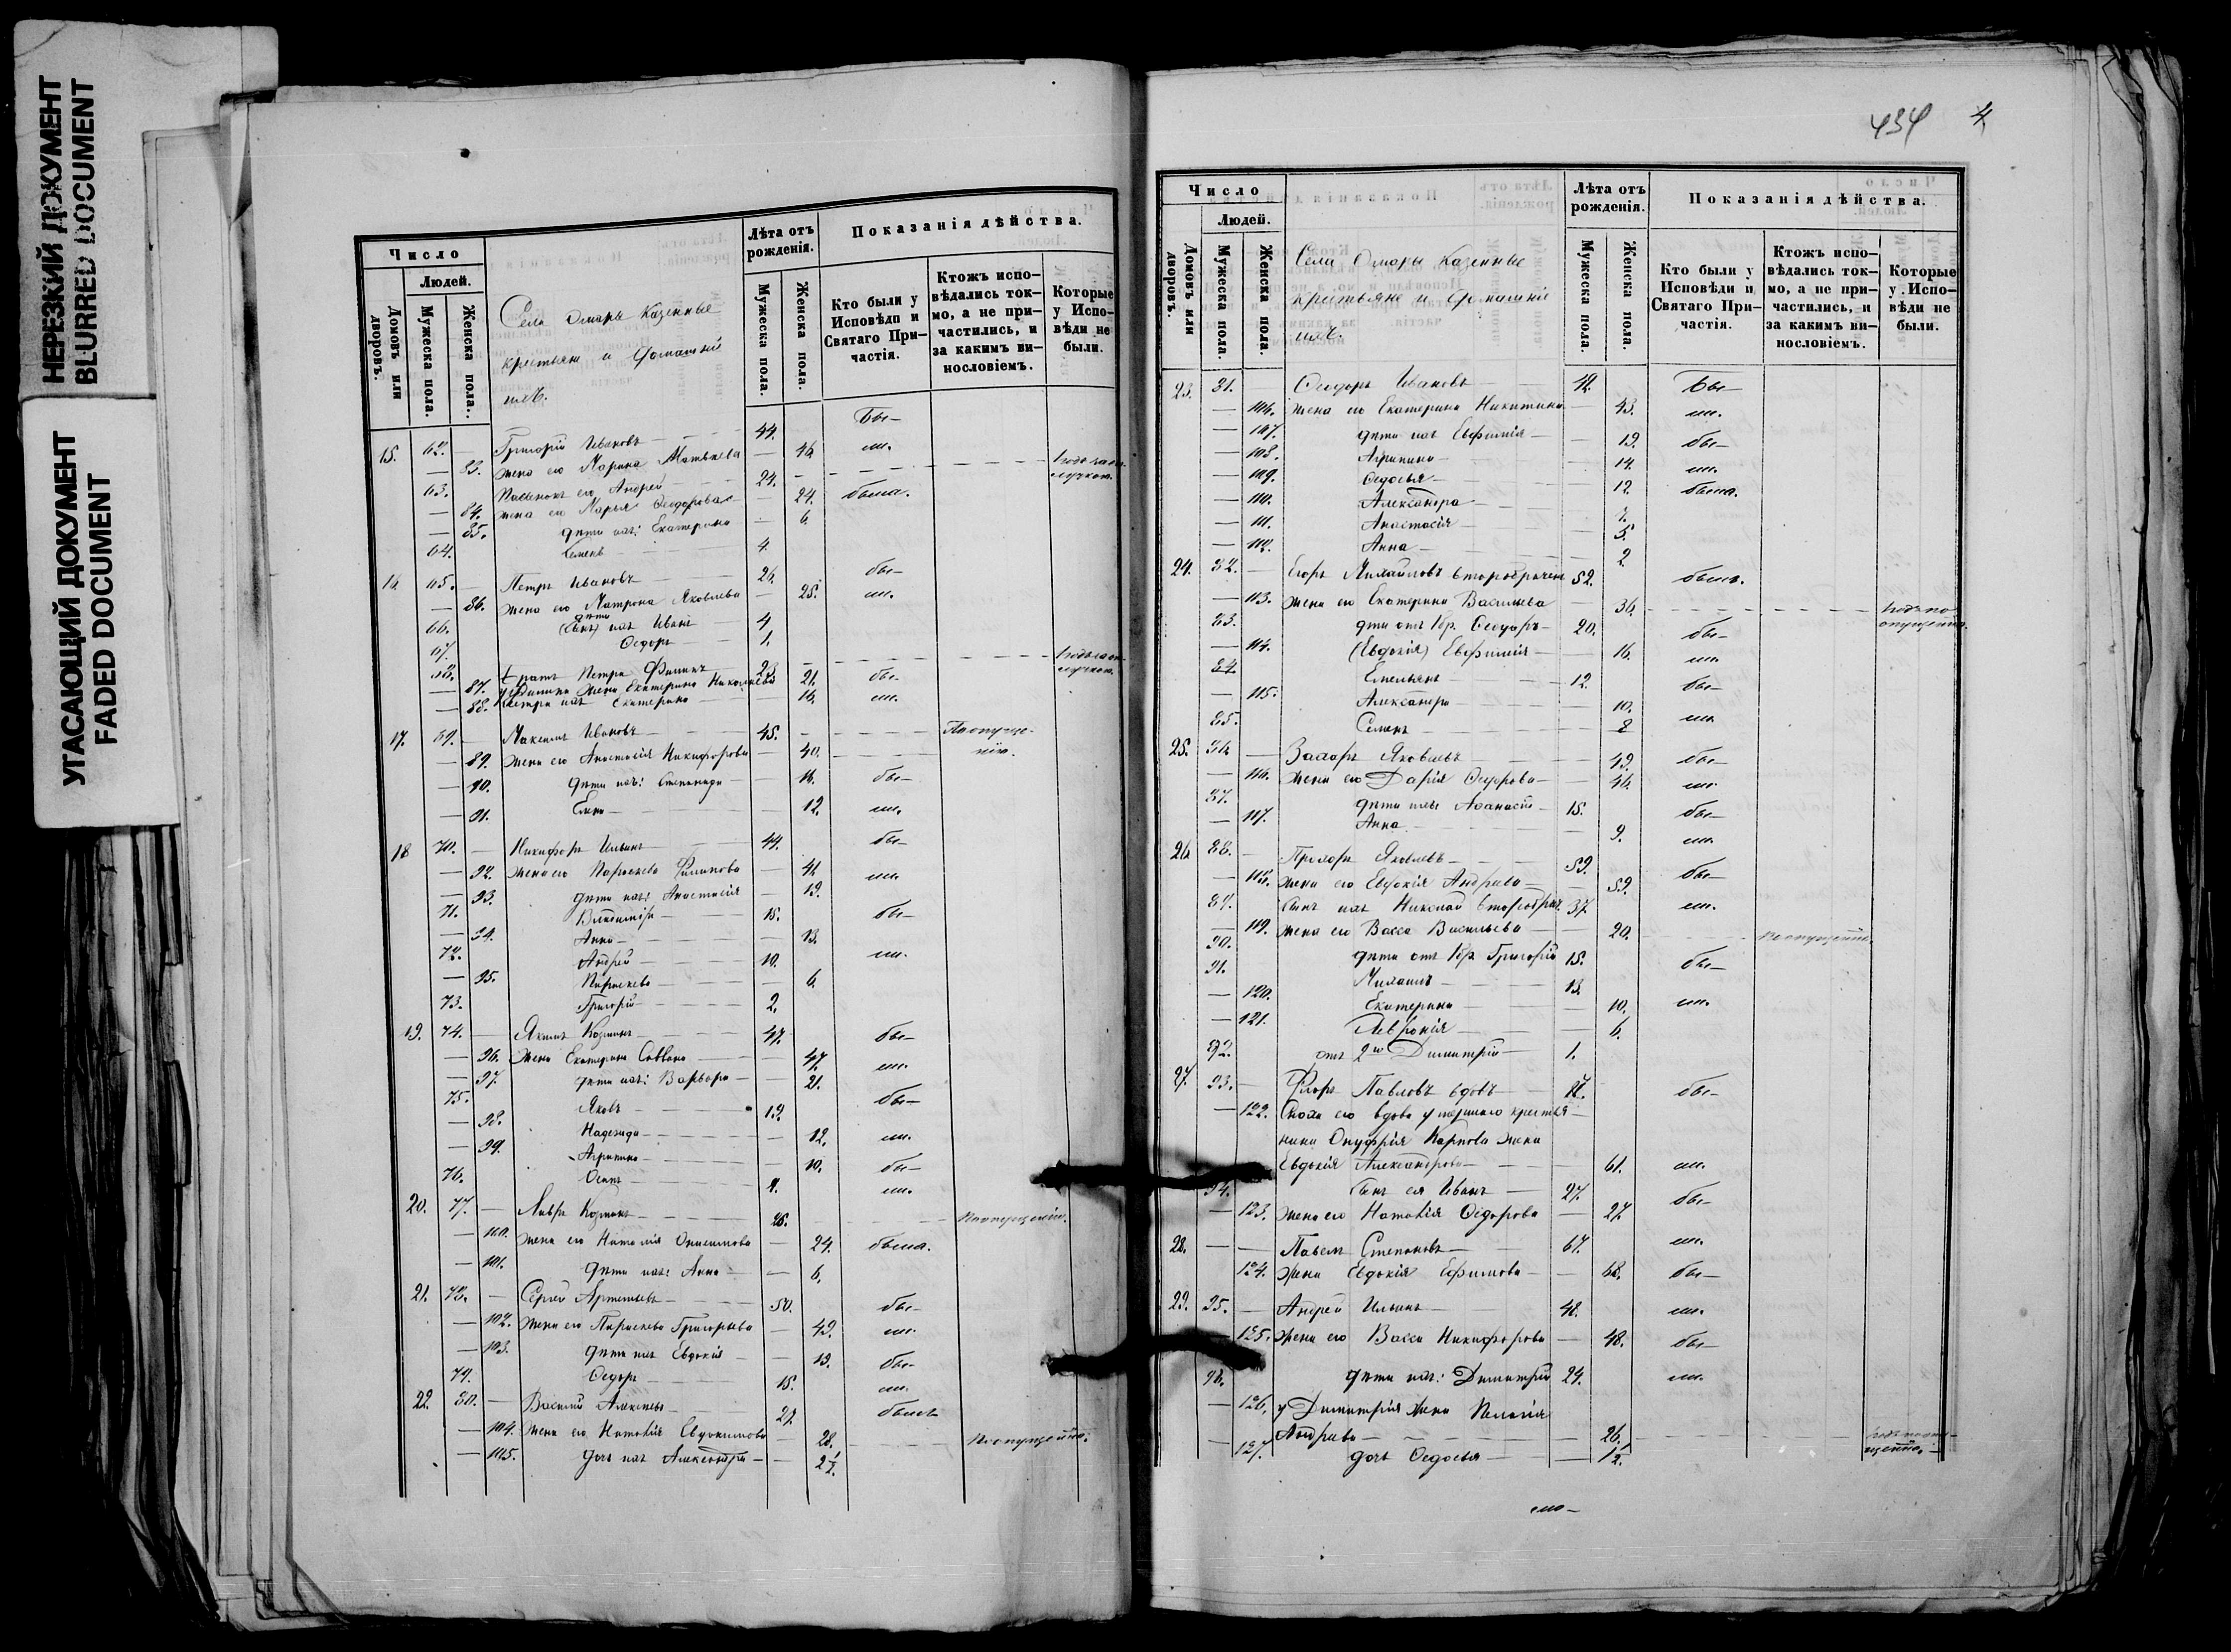 НЕРЕЗКИЙ ДОКУМЕНТ
BLURRED DOCUMENT
УГАСАЮЩИЙ ДОКУМЕНТ
FADED DOCUMENT
Число
Людей.
Домовъ или дворовъ.
Мужеска пола.
Женска пола.
Села Омары Казенные
крестьяне и домашніе
ихъ.
Лѣта отъ рожденія.
Мужеска пола.
Женска пола.
Показанія дѣйства.
Кто были у Исповѣди и Святаго Причастія.
Ктожъ исповѣдались токмо, а не причастились, и за какимъ винословіемъ.
Которые у Исповѣди не были.
15. 62. — Григорій Ивановъ — 44. бы–
— 83. жена его Марина Матвѣева — 46. ли.
63. Пасынокъ его Андрей — 24.
— 84. жена его Марья Ѳеодорова — 24. была.
— 85. дѣти ихъ: Екатерина — 6.
64. Семенъ — 4.
16. 65. — Петръ Ивановъ — 26. бы–
— 86. жена его Матрона Яковлева — 25. ли.
66. дѣти (Сынъ) ихъ Иванъ — 4
67. Ѳедоръ — 1.
68. братъ Петра Филипъ — 23.
— 87. у Филипа жена Екатерина Николаева 21. бы–
— 88. сестра ихъ Екатерина — 16. ли.
17. 69. — Максимъ Ивановъ — 45. По опуще–
— 89. жена его Анастасія Никифорова — 40. нію.
— 90. дѣти ихъ: Степанида — 16. бы–
— 91. Елена — 12. ли.
18 70. — Никифоръ Ильинъ — 44. бы–
— 92. жена его Параскева Филипова — 41. ли.
— 93. дѣти ихъ: Анастасія — 19.
71. Владиміръ — 15. бы–
— 94. Анна — 13.
72. Андрей — 10. ли.
— 95. Параскева — 6.
73. Григорій — 2.
19. 74. — Якимъ Козминъ — 47. бы–
— 96. Жена Екатерина Саввина — 47. ли.
— 97. дѣти ихъ: Варвара — 21.
75. Яковъ — 19. бы–
— 98. Надежда — 12. ли.
— 99. Агрипина — 10. бы–
76. Осипъ — 9. ли.
20. 77. — Лавръ Козминъ — 26. По опущенію.
— 100. жена его Наталія Онисимова — 24. была.
— 101. дѣти ихъ: Анна — 6.
21. 78. — Сергей Артемьевъ — 50. бы–
— 102. жена его Параскева Григорьева — 49. ли.
— 103. дѣти ихъ Евдокія — 19. бы–
79. Ѳедоръ — 15. ли.
22. 80. — Василій Алексѣевъ — 27. былъ
— 104. Жена его Наталія Евдокимова — 28. По опущенію.
— 105. дочь ихъ Александра — 2½.
434 4
Число
Людей.
Домовъ или дворовъ.
Мужеска пола.
Женска пола.
Села Омары Казенные
крестьяне и домашніе
ихъ.
Лѣта отъ рожденія.
Мужеска пола.
Женска пола.
Показанія дѣйства.
Кто были у Исповѣди и Святаго Причастія.
Ктожъ исповѣдались токмо, а не причастились, и за какимъ винословіемъ.
Которые у Исповѣди не были.
23. 81. — Ѳеодоръ Ивановъ — бы–
— 106. жена его Екатерина Никитина — 43. ли.
— 107. дѣти ихъ Евфимія — 19. бы–
— 108. Агрипина — 14. ли.
— 109. Ѳедосья — 12. была.
— 110. Александра — 7.
— 111. Анастасія — 5.
— 112. Анна — 2.
24. 82. — Егоръ Михайловъ второбрачен 52. былъ.
— 113. жена его Екатерина Васильева — 36.
83. дѣти отъ 1бр. Ѳеодоръ — 20. бы–
— 114. (Евдокія) Евфимія — 16. ли.
84. Емельянъ — 12. бы–
— 115. Александра — 10.
85. Семенъ — 8 ли.
25. 86. — Захаръ Яковлевъ — 49. бы–
— 116. жена его Дарія Ѳедорова — 46. ли.
87. дѣти ихъ Аѳанасій — 15. бы–
— 117. Анна — 9. ли.
26. 88. — Прохоръ Яковлевъ — 59. бы–
— 118. жена его Евфокія Андреева — 59.
89. Сынъ ихъ Николай второбрач. 37. ли.
— 119. жена его Васса Васильева — 20. По опущенію.
90. дѣти отъ 1бр. Григорій 15. бы–
91. Михаилъ — 13.
— 120. Екатерина — 10. ли.
— 121. Февронія — 6.
92. отъ 2го Димитрій — 1.
27. 93. — Флоръ Павловъ вдовъ — бы–
— 122. Сноха его вдова умершаго крестья–
нина Онуфрія Карпова жена
Евдокія Александрова — 61. ли.
94. Сынъ ея Иванъ — 27. бы–
— 123. Жена его Наталія Ѳедорова — 27.
28. — — Павелъ Степановъ — 67. ли.
124. Жена Евдокія Ефимова — 68. бы–
29. 95. — Андрей Ильинъ — 48. ли.
— 125. жена его Васса Никифорова — 48. бы–
96. дѣти ихъ: Димитрій 24. ли.
— 126. у Димитрія жена Пелагія
Андреева — 26.
— 127. дочь Ѳедосья — ½.